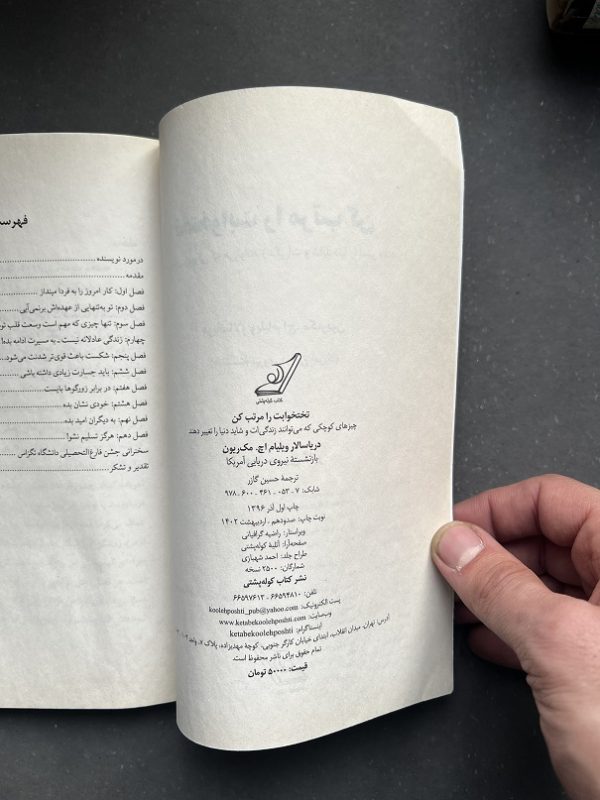 کتاب کوله‌پشتی
تختخوابت را مرتب کن
چیزهای کوچکی که می‌توانند زندگی‌ات و شاید دنیا را تغییر دهند
دریاسالار ویلیام اچ. مک‌ریون
بازنشستهٔ نیروی دریایی آمریکا
ترجمهٔ حسین گازر
شابک: ۷ ـ ۰۵۳ ـ ۴۶۱ ـ ۶۰۰ ـ ۹۷۸
چاپ اول آذر ۱۳۹۶
نوبت چاپ: صدودهم ، اردیبهشت ۱۴۰۲
ویراستار: راضیه گرافیانی
صفحه‌آرا: آتلیهٔ کوله‌پشتی
طراح جلد: احمد شهبازی
شمارگان: ۲۵۰۰ نسخه
نشر کتاب کوله‌پشتی
تلفن: ۶۶۵۹۴۸۱۰ ـ ۶۶۵۹۷۶۱۳
پست الکترونیک: koolehposhti_pub@yahoo.com
وب‌سایت: www.ketabekoolehposhti.com
اینستاگرام: ketabekoolehposhti
آدرس: تهران، میدان انقلاب، ابتدای خیابان کارگر جنوبی، کوچهٔ مهدیزاده، پلاک ۷، واحد
تمام حقوق برای ناشر محفوظ است.
قیمت: ۵۰۰۰۰ تومان
فهرست
درمورد نویسنده
مقدمه
فصل اول: کار امروز را به فردا مینداز
فصل دوم: تو به‌تنهایی از عهده‌اش برنمی‌آیی
فصل سوم: تنها چیزی که مهم است وسعت قلب تو
چهارم: زندگی عادلانه نیست ـ به مسیرت ادامه بده!
فصل پنجم: شکست باعث قوی‌تر شدنت می‌شود
فصل ششم: باید جسارت زیادی داشته باشی
فصل هفتم: در برابر زورگوها بایست
فصل هشتم: خودی نشان بده
فصل نهم: به دیگران امید بده
فصل دهم: هرگز تسلیم نشو!
سخنرانی جشن فارغ‌التحصیلی دانشگاه تگزاس
تقدیر و تشکر